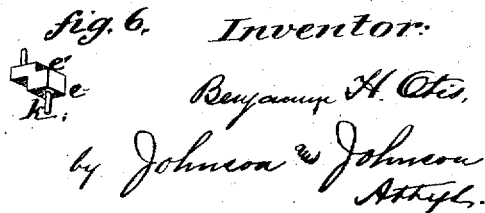 fig. 6. Inventor:
e'
e
k.
Benjamin H. Otis.
by Johnson and Johnson
Attys.